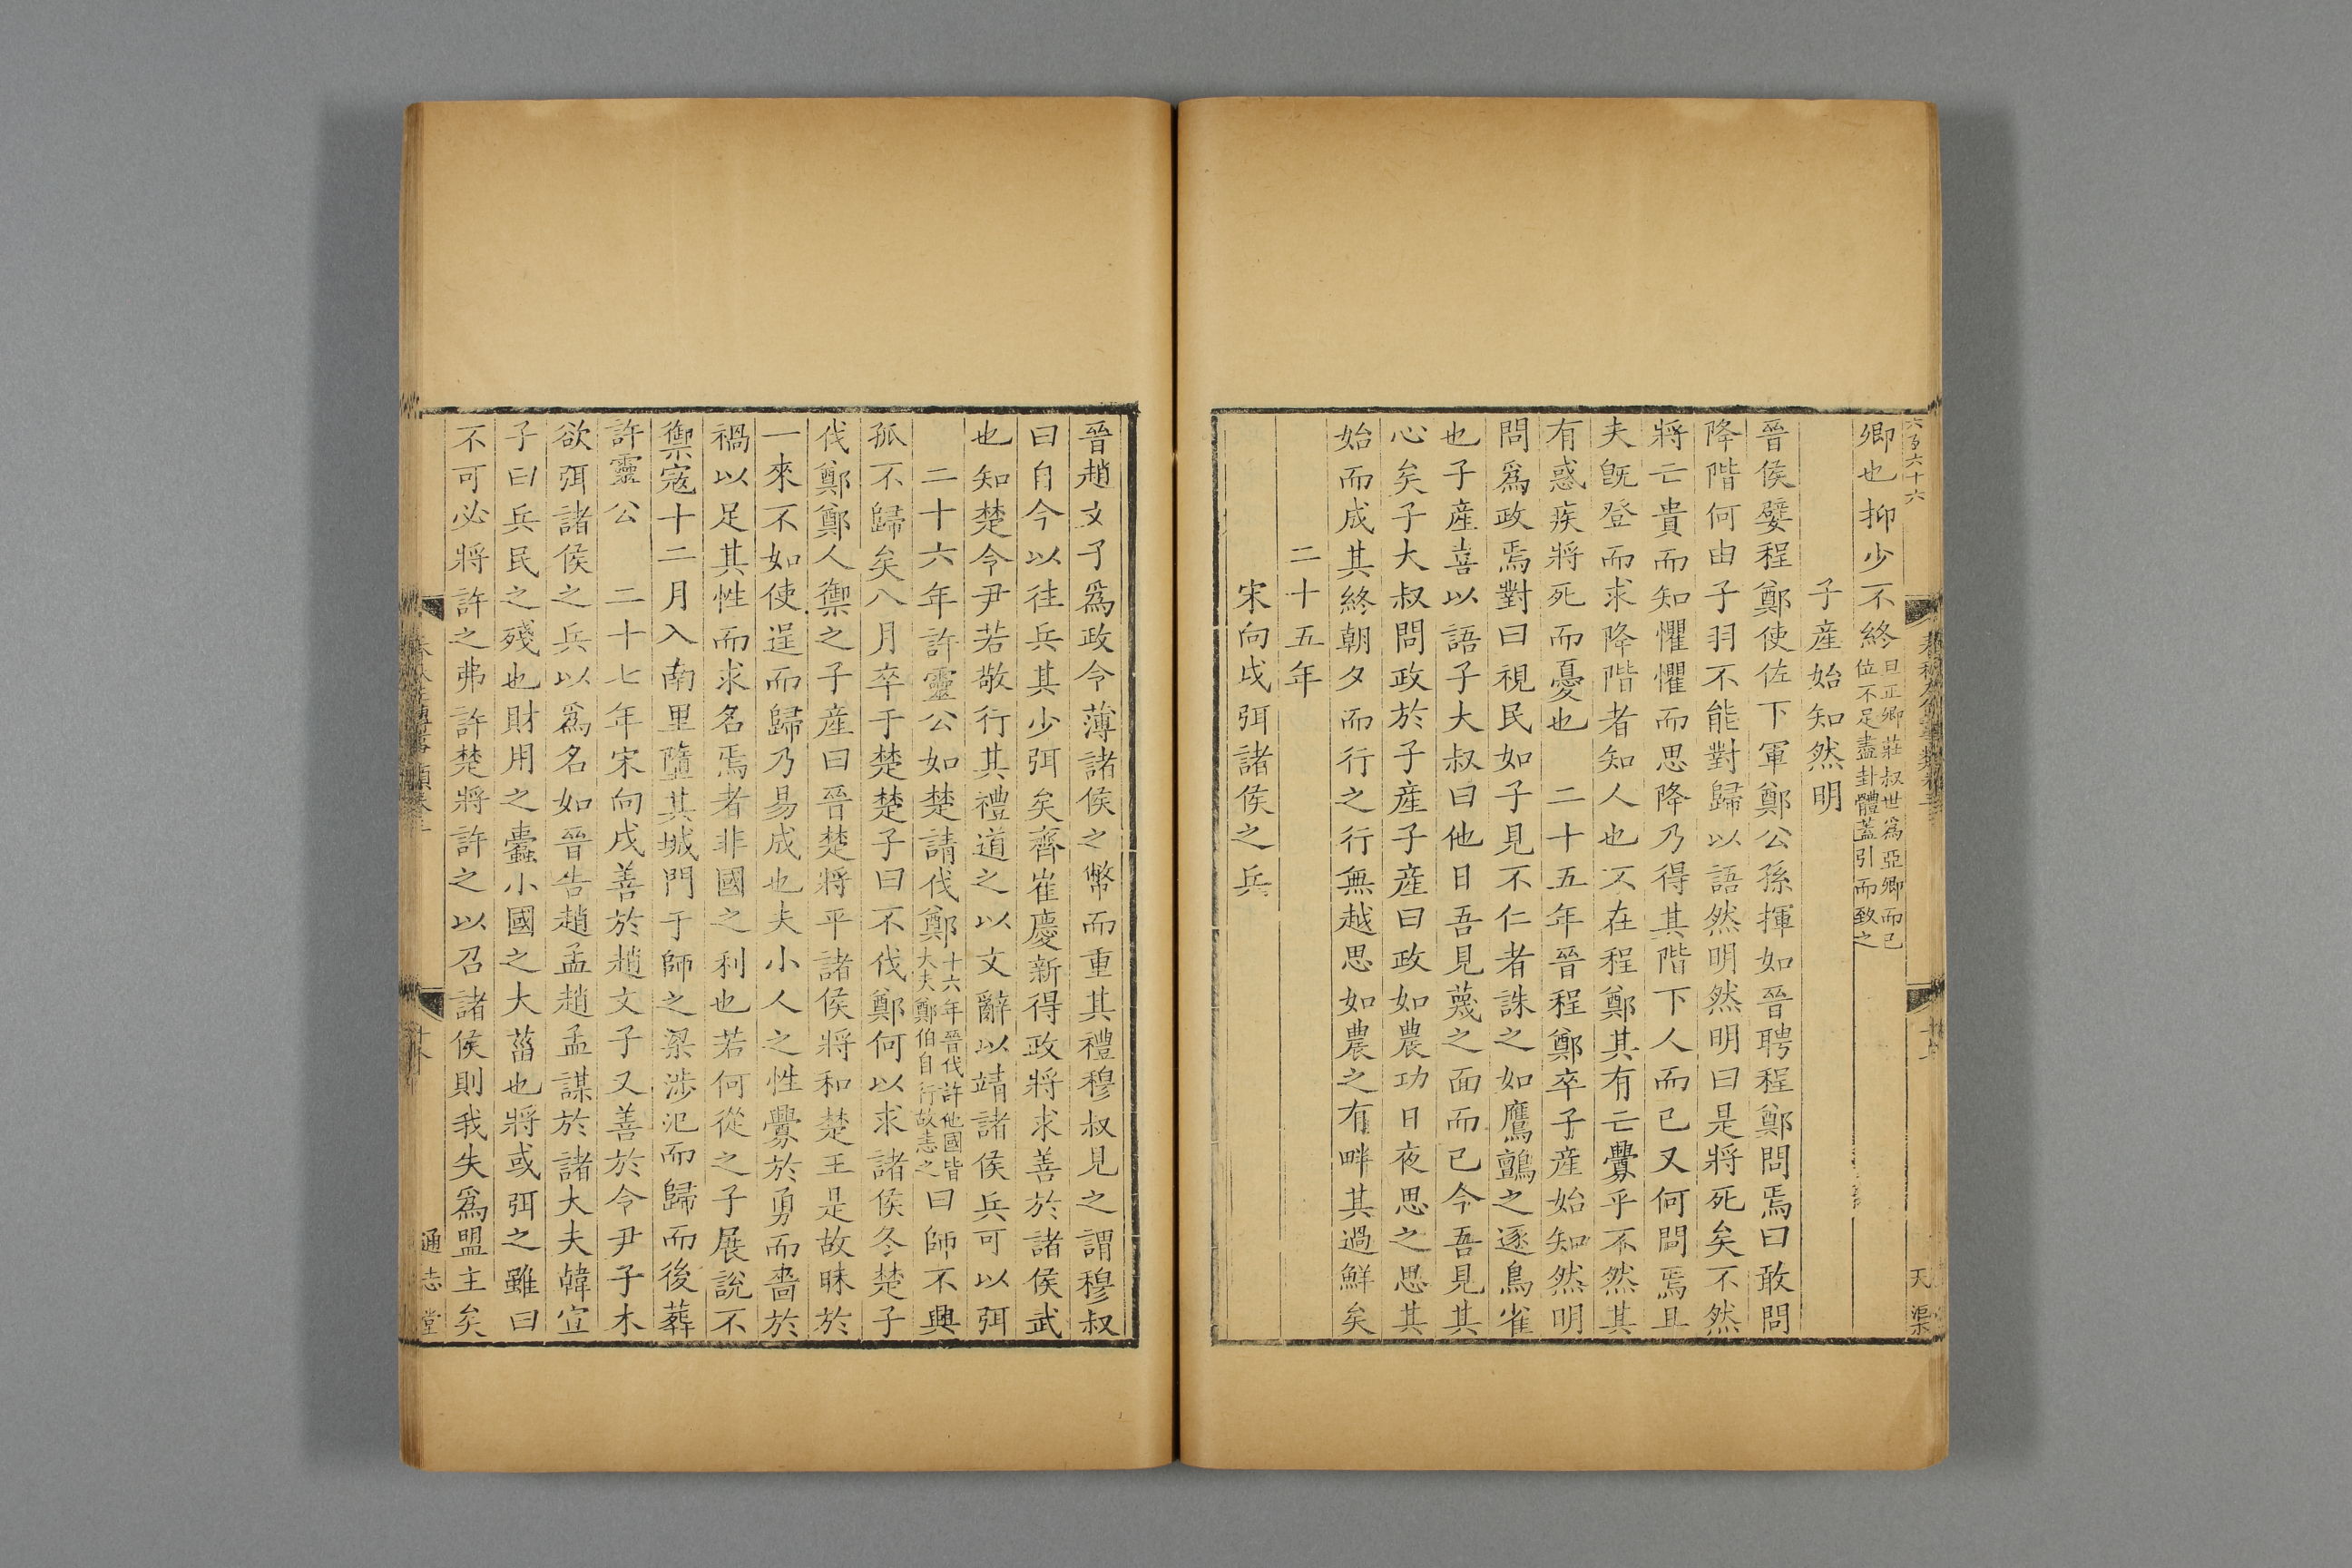 六百六十六
天渠
卿也抑少不終
旦正卿莊叔世爲亞卿而已
位不足盡封體蓋引而致之
子產始知然明
晉侯嬖程鄭使佐下軍鄭公孫揮如晉聘程鄭問焉曰敢問
降階何由子羽不能對歸以語然明然明曰是將死矣不然
將亡貴而知懼懼而思降乃得其階下人而已又何問焉且
夫既登而求降階者知人也不在程鄭其有亡釁乎不然其
有惑疾將死而憂也 二十五年晉程鄭卒子產始知然明
問爲政焉對曰視民如子見不仁者誅之如鷹鸇之逐鳥雀
也子產喜以語子大叔曰他日吾見蔑之面而已今吾見其
心矣子大叔問政於子產子產曰政如農功日夜思之思其
始而成其終朝夕而行之行無越思如農之有畔其過鮮矣
二十五年
宋向戌弭諸侯之兵
晉趙文子爲政令薄諸侯之幣而重其禮穆叔見之謂穆叔
曰自今以往兵其少弭矣齊崔慶新得政將求善於諸侯武
也知楚令尹若敬行其禮道之以文辭以靖諸侯兵可以弭
二十六年許靈公如楚請伐鄭
十六年晉伐許他國皆
大夫鄭伯自行故恚之
曰師不興
孤不歸矣八月卒于楚楚子曰不伐鄭何以求諸侯冬楚子
伐鄭鄭人禦之子產曰晉楚將平諸侯將和楚王是故昧於
一來不如使逞而歸乃易成也夫小人之性釁於勇而嗇於
禍以足其性而求名焉者非國之利也若何從之子展說不
禦寇十二月入南里墮其城門于師之梁涉氾而歸而後葬
許靈公 二十七年宋向戌善於趙文子又善於令尹子木
欲弭諸侯之兵以爲名如晉告趙孟趙孟謀於諸大夫韓宣
子曰兵民之殘也財用之蠹小國之大菑也將或弭之雖曰
不可必將許之弗許楚將許之以召諸侯則我失爲盟主矣
通志堂